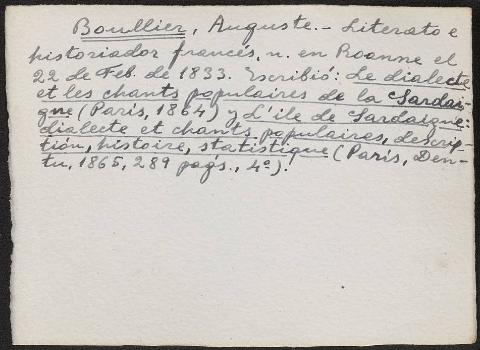 Boullier, Auguste.- Literato e
historiador francés, n. en Roanne el
22 de Feb. de 1833. Escribió: Le dialecte
et les chants populaires de la Sardai-
gne (Paris, 1864) y L'ile de Sardaigne:
dialecte et chants populaires, descrip-
tión, histoire, statistique (Paris, Den-
tu, 1865, 289 págs., 4º).